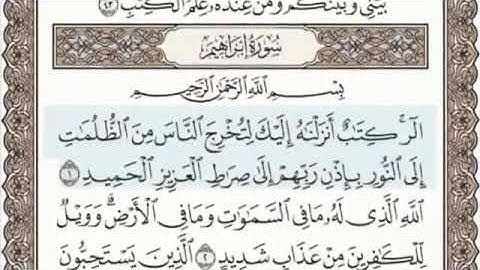 بَيْنِي وَبَيْنَكُمْ وَمَنْ عِندَهُۥ عِلْمُ ٱلْكِتَٰبِ ٤٣
سُورَةُ إِبْرَاهِيمَ
بِسْمِ ٱللَّهِ ٱلرَّحْمَٰنِ ٱلرَّحِيمِ
الٓر ۚ كِتَٰبٌ أَنزَلْنَٰهُ إِلَيْكَ لِتُخْرِجَ ٱلنَّاسَ مِنَ ٱلظُّلُمَٰتِ
إِلَى ٱلنُّورِ بِإِذْنِ رَبِّهِمْ إِلَىٰ صِرَٰطِ ٱلْعَزِيزِ ٱلْحَمِيدِ ١
ٱللَّهِ ٱلَّذِى لَهُۥ مَا فِى ٱلسَّمَٰوَٰتِ وَمَا فِى ٱلْأَرْضِ ۗ وَوَيْلٌ
لِّلْكَٰفِرِينَ مِنْ عَذَابٍ شَدِيدٍ ٢ ٱلَّذِينَ يَسْتَحِبُّونَ